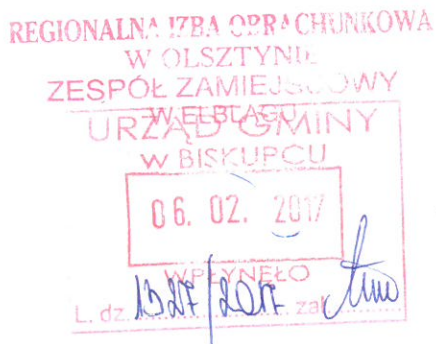 REGIONALNA IZBA OBRACHUNKOWA
W OLSZTYNIE
ZESPÓŁ ZAMIEJSCOWY
W ELBLĄGU
URZĄD GMINY
w BISKUPCU
06. 02. 2017
WPŁYNĘŁO
L. dz. 1327/2017 zał.